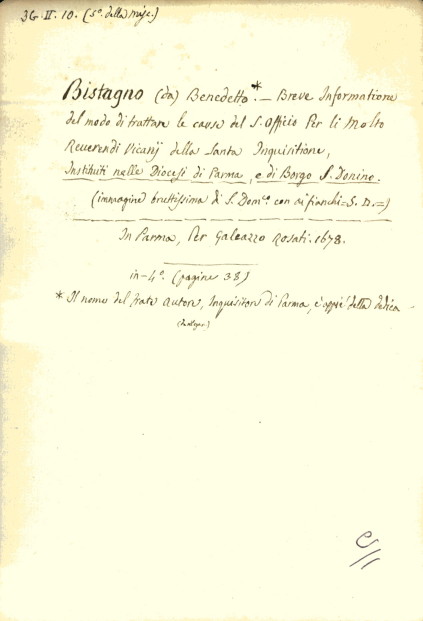 36. II. 10. (5º. della Misc.)
Bistagno (da) Benedetto*. — Breve Informatione
del modo di trattare le cause del S. Officio Per li Molto
Reverendi Vicarij della Santa Inquisitione,
Instituiti nelle Diocesi di Parma, e di Borgo S. Donino.
(immagine bruttissima di S. Domco con ai fianchi = S. D. =)
In Parma, Per Galeazzo Rosati. 1678.
in-4º. (pagine 38)
* Il nome del frate autore, Inquisitore di Parma, è appiè della dedica